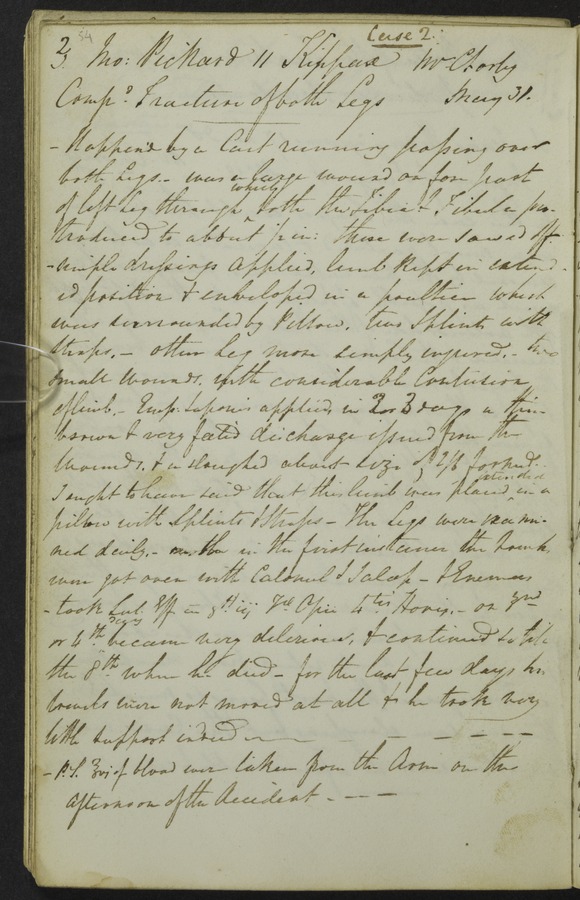 Case 2.
2 54
3. Mo: Pickard 11 Kippax Mr Chorley
Compd. Fracture of both Legs May 31.
- Happened by a Cart running passing over
both Legs. - was a large wound on fore part
of left Leg through which both the Tibia & Fibula pro-
truded to about 1 in: these were sawed off
- simple dressings applied, limb kept in extend-
ed position & enveloped in a poultice which
was surrounded by Pillow, two Splints with
straps. - other Leg more simply injured. - two
small wounds, with considerable Contusion
of limb. - Emp: Saponis applied in 2 or 3 days a thin
brown & very fœtid discharge issued from the
wounds, & a slough about size of 2/6 formed.
I ought to have said that this limb was placed extended in a
pillow with Splints & Straps - The Legs were exami-
ned daily. - in the first instance the bowels
were got over with Calomel & Jalap - & Enemas
- took Sal: Eff Tre Opii 4tis Horis. - on 3rd
or 4th days became very delirious, & continued so till
the 8th when he died - for the last few days his
bowels were not moved at all & he took very
little support indeed
- P.S. of blood were taken from the Arm on the
afternoon of the Accident. -